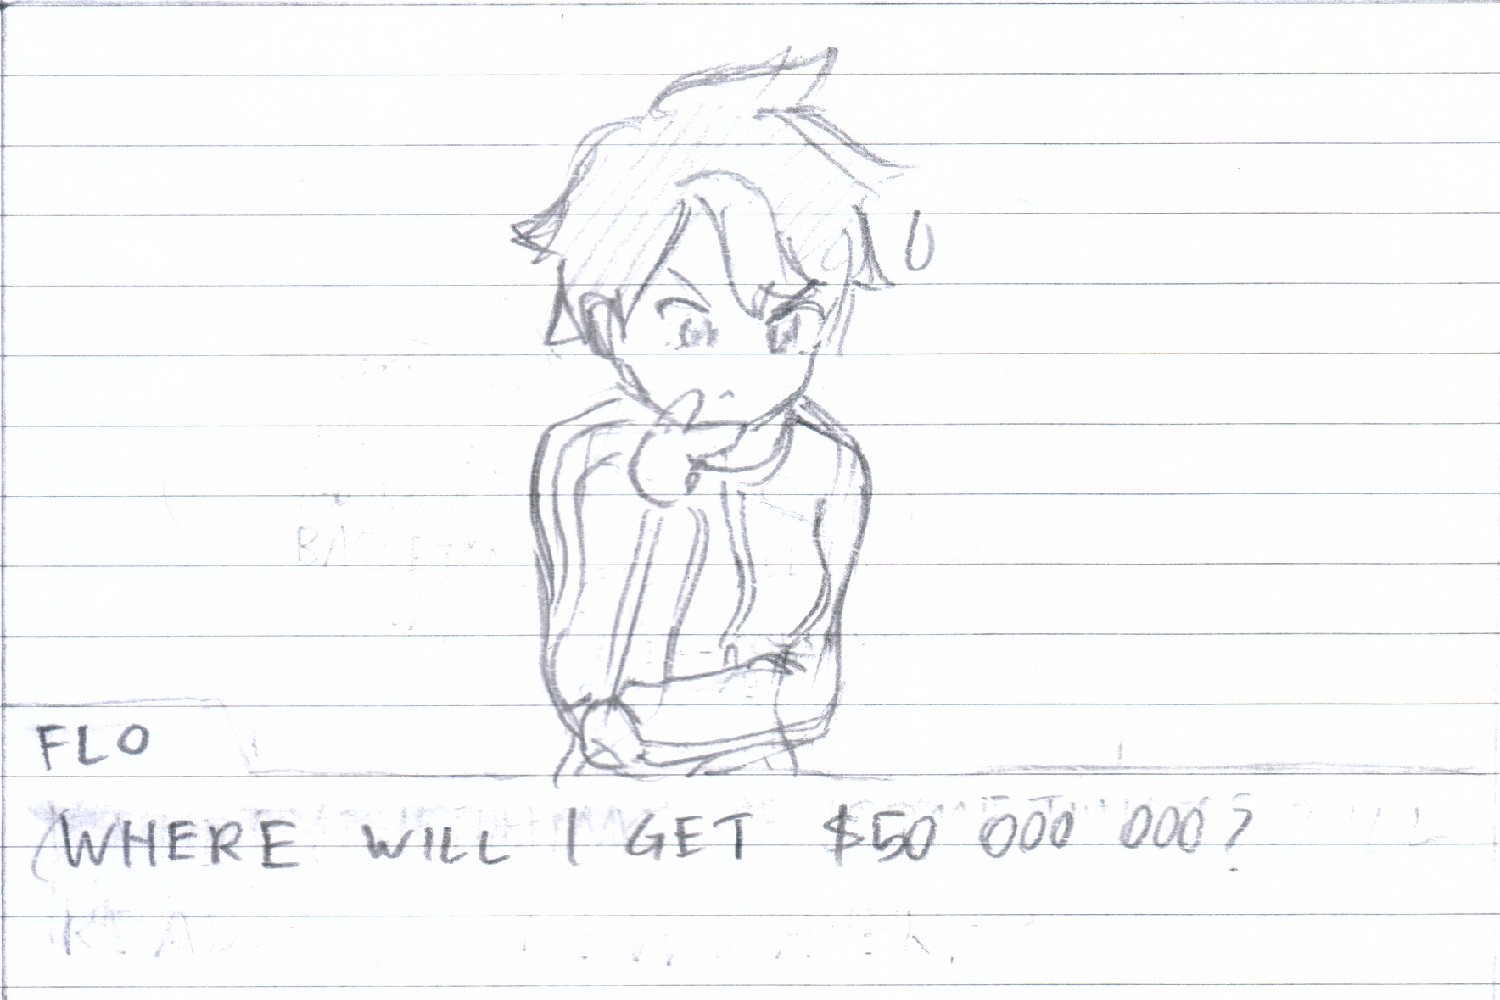 FLO
WHERE WILL I GET $50 000 000?